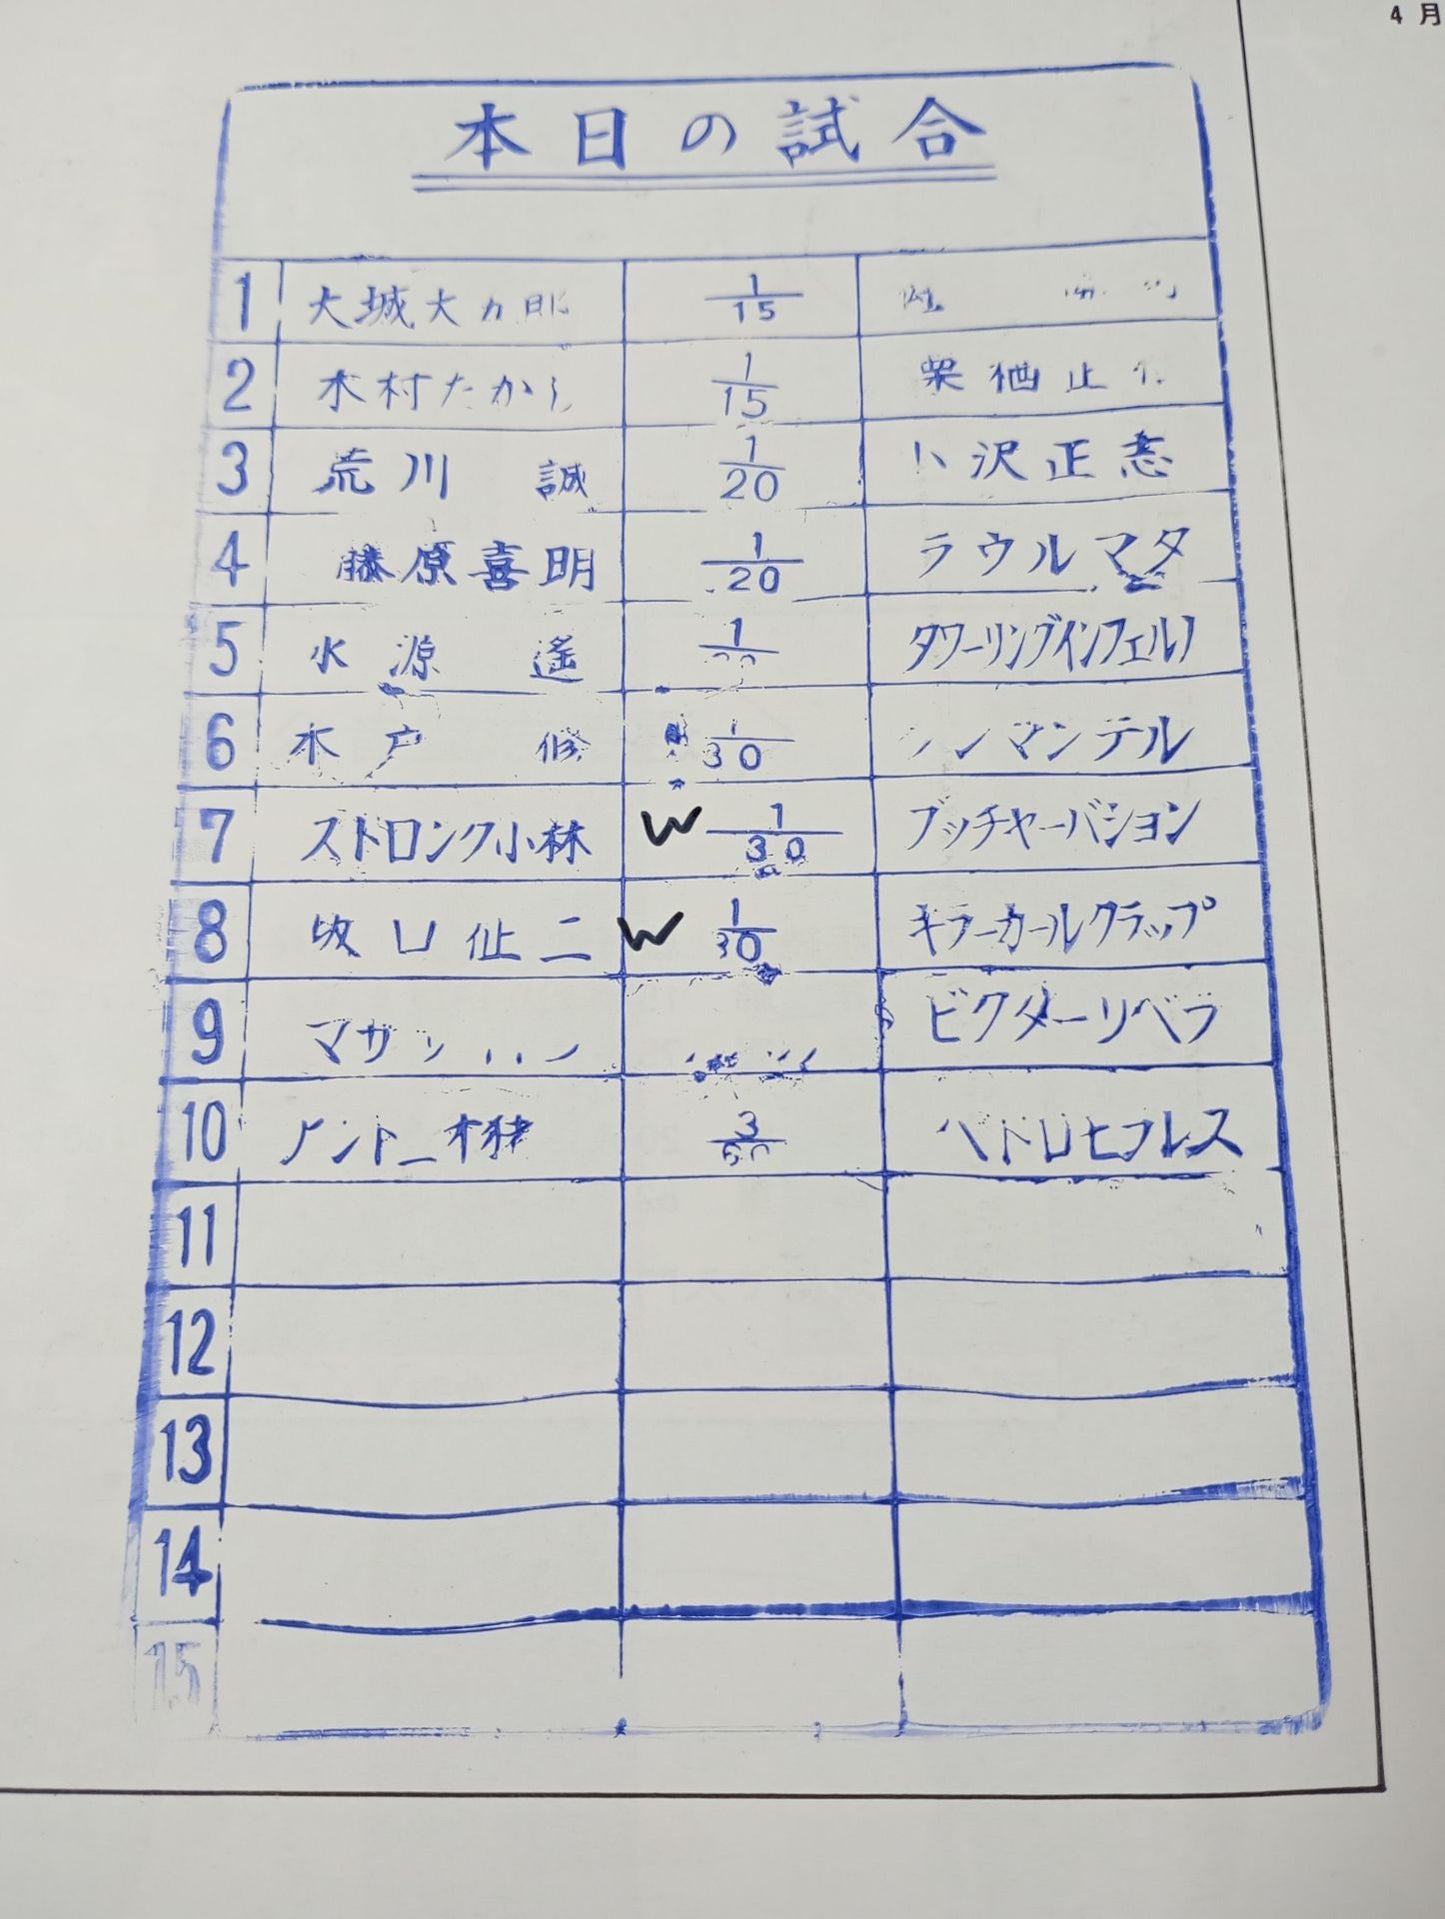 4月
本日の試合
1 大城大五郎 1/15
2 木村たかし 1/15 柴栖止
3 荒川 誠 1/20 小沢正志
4 藤原喜明 1/20 ラウルマタ
5 水源 遙 1 タワーリングインフェルノ
6 木戸 修 1/30 マンテル
7 ストロング小林 W 1/30 ブッチャーバション
8 坂口征二 W 1/30 キラーカールクラップ
9 マサ ビクターリベラ
10 アントニオ猪木 3 ペドロモラレス
11
12
13
14
15